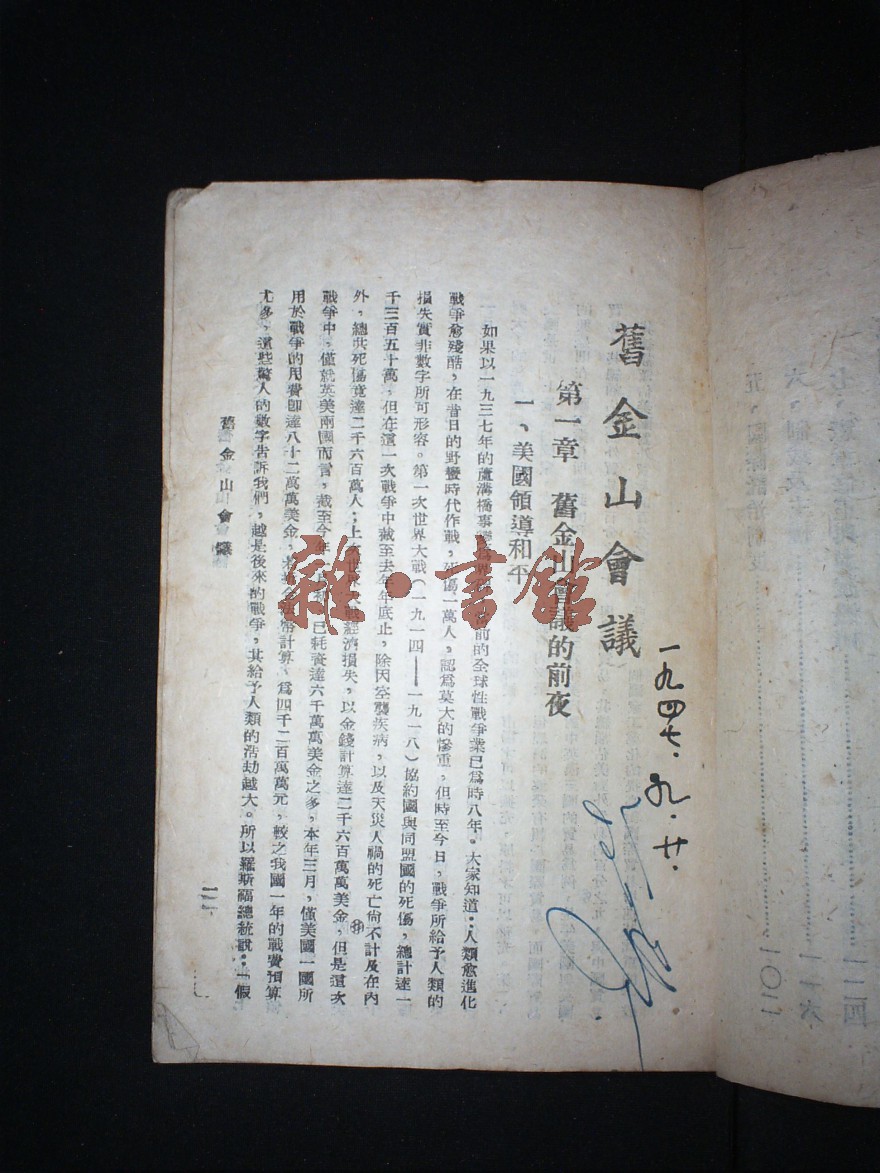 舊金山會議
第一章 舊金山會議的前夜
一、美國領導和平
如果以一九三七年的蘆溝橋事變 前的全球性戰爭業已爲時八年。大家知道：人類愈進化
戰爭愈殘酷，在昔日的野蠻時代作戰，死傷一萬人，認爲莫大的慘重，但時至今日，戰爭所給予人類的
損失實非數字所可形容。第一次世界大戰（一九一四——一九一八）協約國與同盟國的死傷，總計達一
千三百五十萬，但在這一次戰爭中截至去年年底止，除因空襲疾病，以及天災人禍的死亡尙不計及在內
外，總共死傷竟達二千六百萬人；上次世界大戰經濟損失，以金錢計算達二千六百萬萬美金，但是這次
戰爭中，僅就英美兩國而言，截至今年 已耗資達六千萬萬美金之多，本年三月，僅美國一國所
用於戰爭的用費卽達八十二萬萬美金， 法幣計算，爲四千二百萬萬元，較之我國一年的戰費預算
尤多，這些驚人的數字告訴我們，越是後來的戰爭，其給予人類的浩劫越大。所以羅斯福總統說：「假
舊金山會議
一
一九四七.九.廿.
雜·書館
一二四
一一六
一〇一